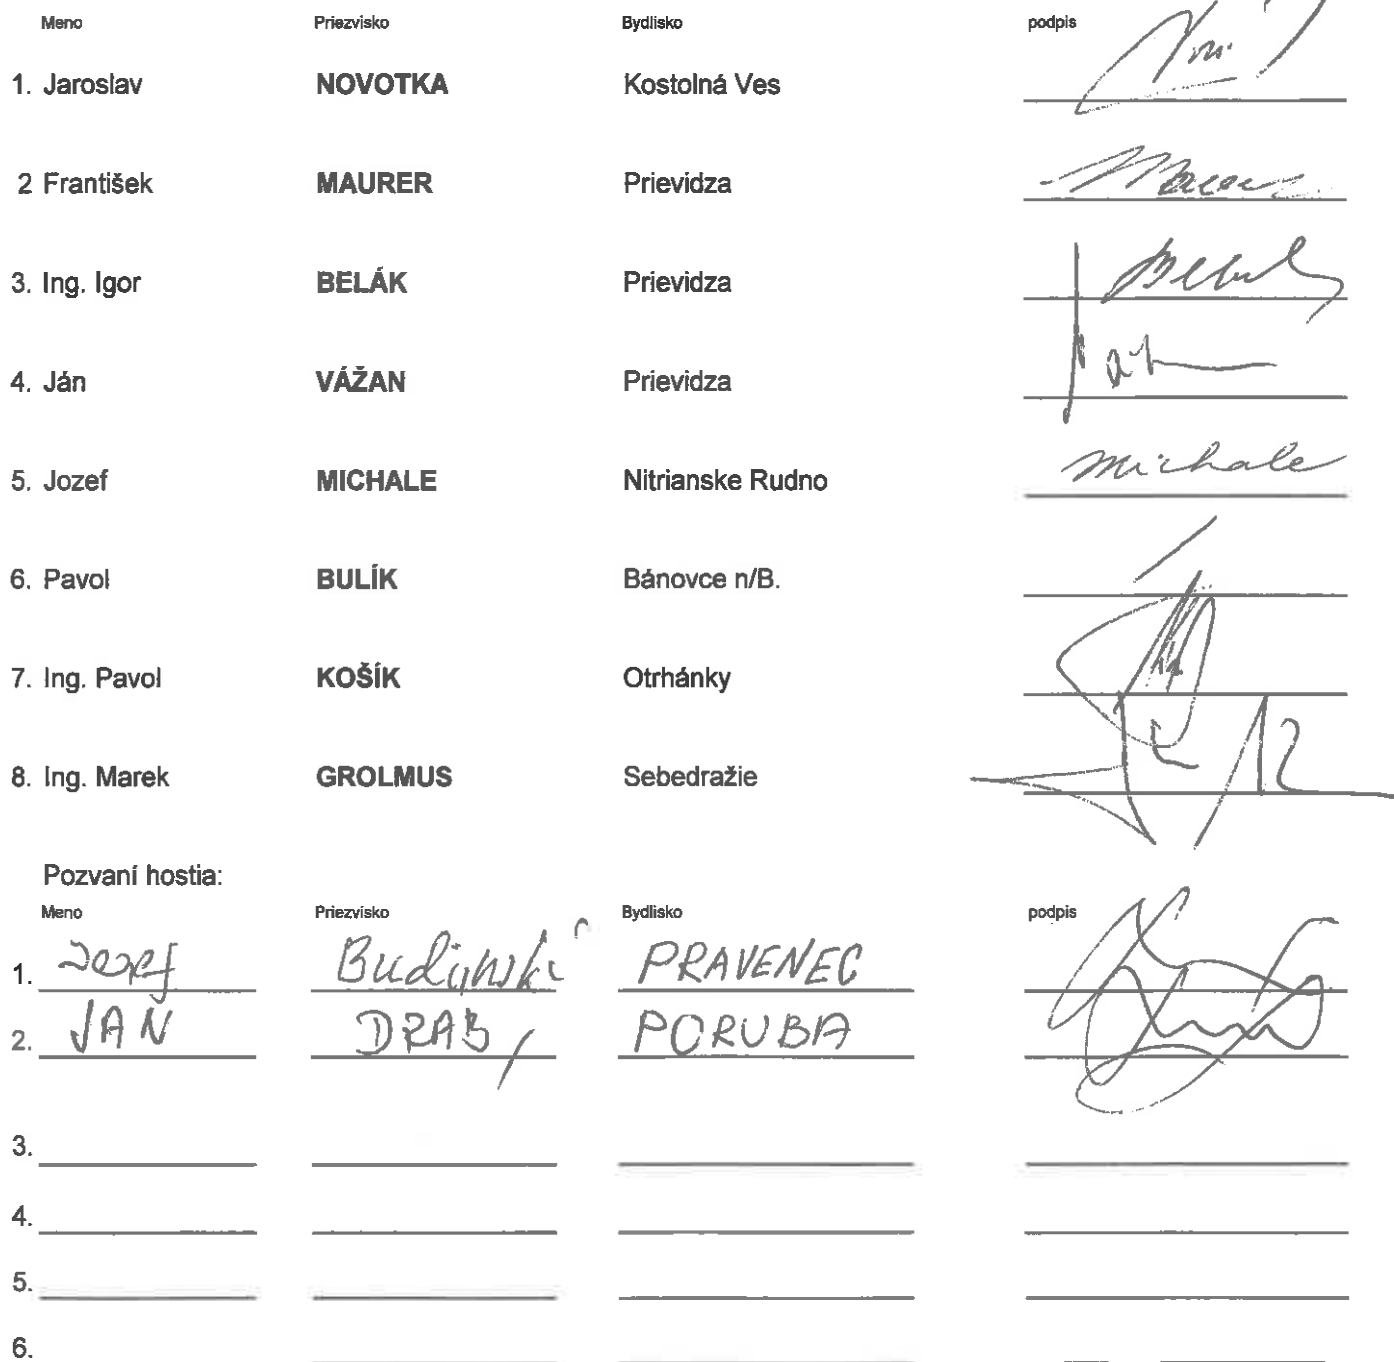 Meno Priezvisko Bydlisko podpis
1. Jaroslav NOVOTKA Kostolná Ves
2 František MAURER Prievidza
3. Ing. Igor BELÁK Prievidza
4. Ján VÁŽAN Prievidza
5. Jozef MICHALE Nitrianske Rudno Michale
6. Pavol BULÍK Bánovce n/B.
7. Ing. Pavol KOŠÍK Otrhánky
8. Ing. Marek GROLMUS Sebedražie
Pozvaní hostia:
Meno Priezvisko Bydlisko podpis
1. Jozef PRAVENEC
2. JAN DRAB PORUBA
3.
4.
5.
6.